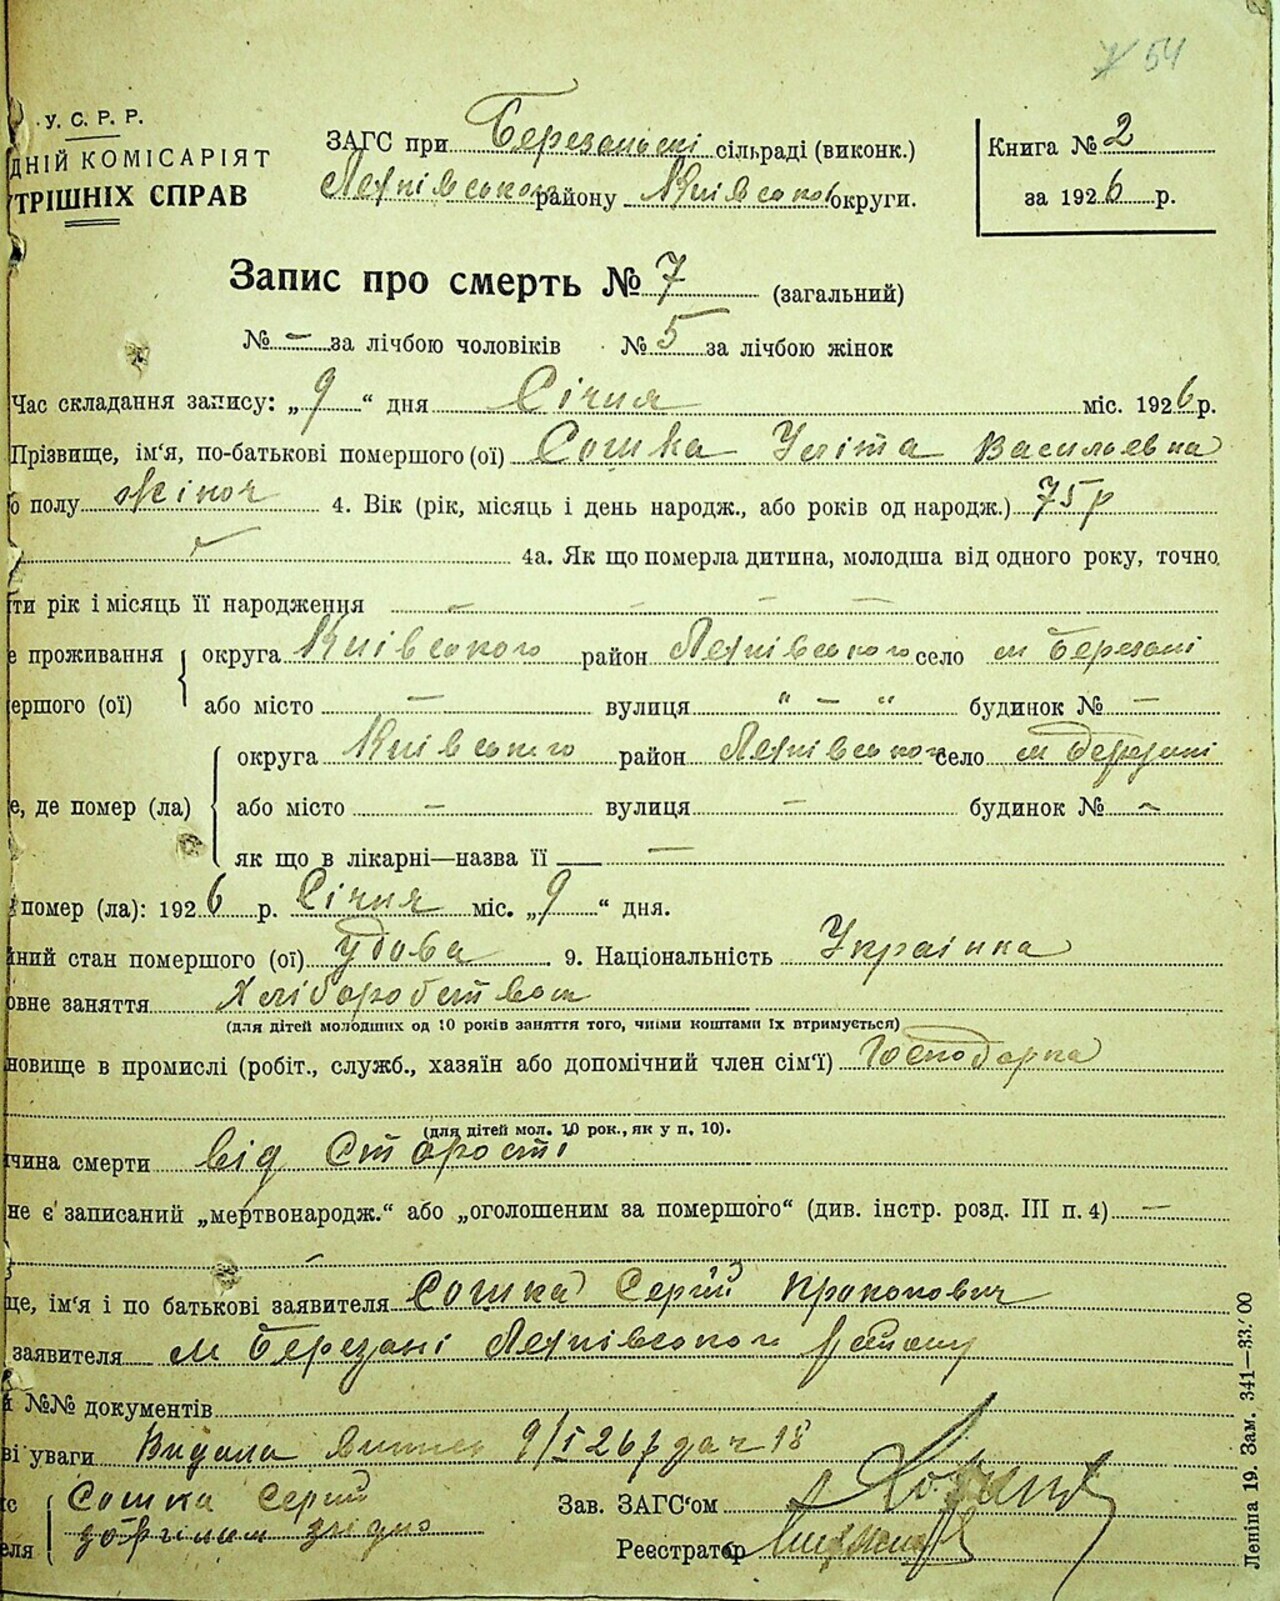 54
У. С. Р. Р.
ДНІЙ КОМІСАРІЯТ
ТРІШНІХ СПРАВ
ЗАГС при Березанські сільраді (виконк.)
району Київського округи.
Книга № 2
за 1926 р.
Запис про смерть № 7 (загальний)
№ — за лічбою чоловіків № 5 за лічбою жінок
Час складання запису: „9“ дня Січня міс. 1926 р.
Прізвище, ім'я, по-батькові помершого (ої) Сошка Уліта Васильевна
о полу жіноч 4. Вік (рік, місяць і день народж., або років од народж.) 75 р
4а. Як що померла дитина, молодша від одного року, точно
ти рік і місяць її народження — — — —
е проживання округа Київського район село м Березані
ершого (ої) або місто — вулиця " — " будинок № —
округа Київського район село м Березані
е, де помер (ла) або місто — вулиця — будинок № —
як що в лікарні—назва її —
помер (ла): 1926 р. Січня міс. „9“ дня.
ний стан помершого (ої) удова 9. Національність Украінка
овне заняття Хліборобством
(для дітей молодших од 10 років заняття того, чиїми коштами їх втримується)
новище в промислі (робіт., служб., хазяїн або допомічний член сім'ї) Господарка
(для дітей мол. 10 рок., як у п. 10).
чина смерти від Старости
не є записаний „мертвонародж.“ або „оголошеним за помершого“ (див. інстр. розд. III п. 4) —
—
ще, ім'я і по батькові заявителя Сошка Сергій Прокопович
заявителя м Березані району
№№ документів
ві уваги Видала 9/I 26 р
с Сошка Сергій
еля
Зав. ЗАГС'ом
Реєстратор
Леніна 19. Зам. 341—33.'00